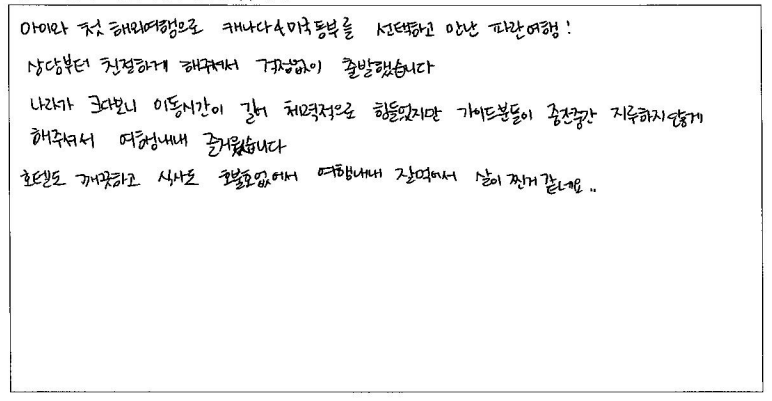 아이와 첫 해외여행으로 캐나다&미국동부를 선택하고 만난 파란여행!
상담부터 친절하게 해주셔서 걱정없이 출발했습니다
나라가 크다보니 이동시간이 길어 체력적으로 힘들었지만 가이드분들이 중전중간 지루하지않게
해주셔서 여행내내 즐거웠습니다
호텔도 깨끗하고 식사도 호불호없에서 여행내내 잘먹어서 살이 찐거 같네요..